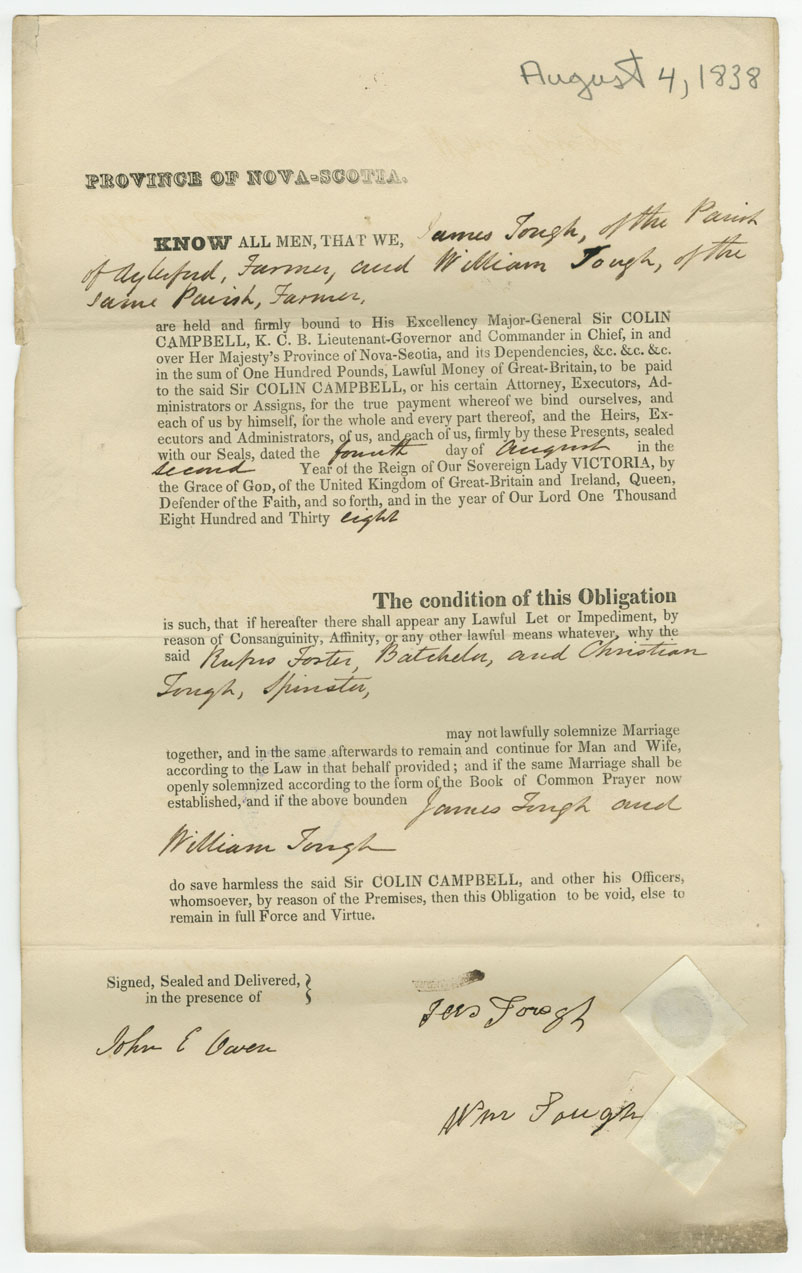 August 4, 1838
PROVINCE OF NOVA-SCOTIA.
KNOW ALL MEN, THAT WE, James Tough, of the Parish
of Aylesford, Farmer, and William Tough, of the
same Parish, Farmer,
are held and firmly bound to His Excellency Major-General Sir COLIN
CAMPBELL, K. C. B. Lieutenant-Governor and Commander in Chief, in and
over Her Majesty's Province of Nova-Scotia, and its Dependencies, &c. &c. &c.
in the sum of One Hundred Pounds, Lawful Money of Great-Britain, to be paid
to the said Sir COLIN CAMPBELL, or his certain Attorney, Executors, Ad-
ministrators or Assigns, for the true payment whereof we bind ourselves, and
each of us by himself, for the whole and every part thereof, and the Heirs, Ex-
ecutors and Administrators, of us, and each of us, firmly by these Presents, sealed
with our Seals, dated the fourth day of August in the
second Year of the Reign of Our Sovereign Lady VICTORIA, by
the Grace of GOD, of the United Kingdom of Great-Britain and Ireland, Queen,
Defender of the Faith, and so forth, and in the year of Our Lord One Thousand
Eight Hundred and Thirty eight
The condition of this Obligation
is such, that if hereafter there shall appear any Lawful Let or Impediment, by
reason of Consanguinity, Affinity, or any other lawful means whatever, why the
said Rufus Foster, Batchelor, and Christian
Tough, Spinster,
may not lawfully solemnize Marriage
together, and in the same afterwards to remain and continue for Man and Wife,
according to the Law in that behalf provided; and if the same Marriage shall be
openly solemnized according to the form of the Book of Common Prayer now
established, and if the above bounden James Tough and
William Tough
do save harmless the said Sir COLIN CAMPBELL, and other his Officers,
whomsoever, by reason of the Premises, then this Obligation to be void, else to
remain in full Force and Virtue.
Signed, Sealed and Delivered,
in the presence of
John E Owen
Tough
Wm Tough